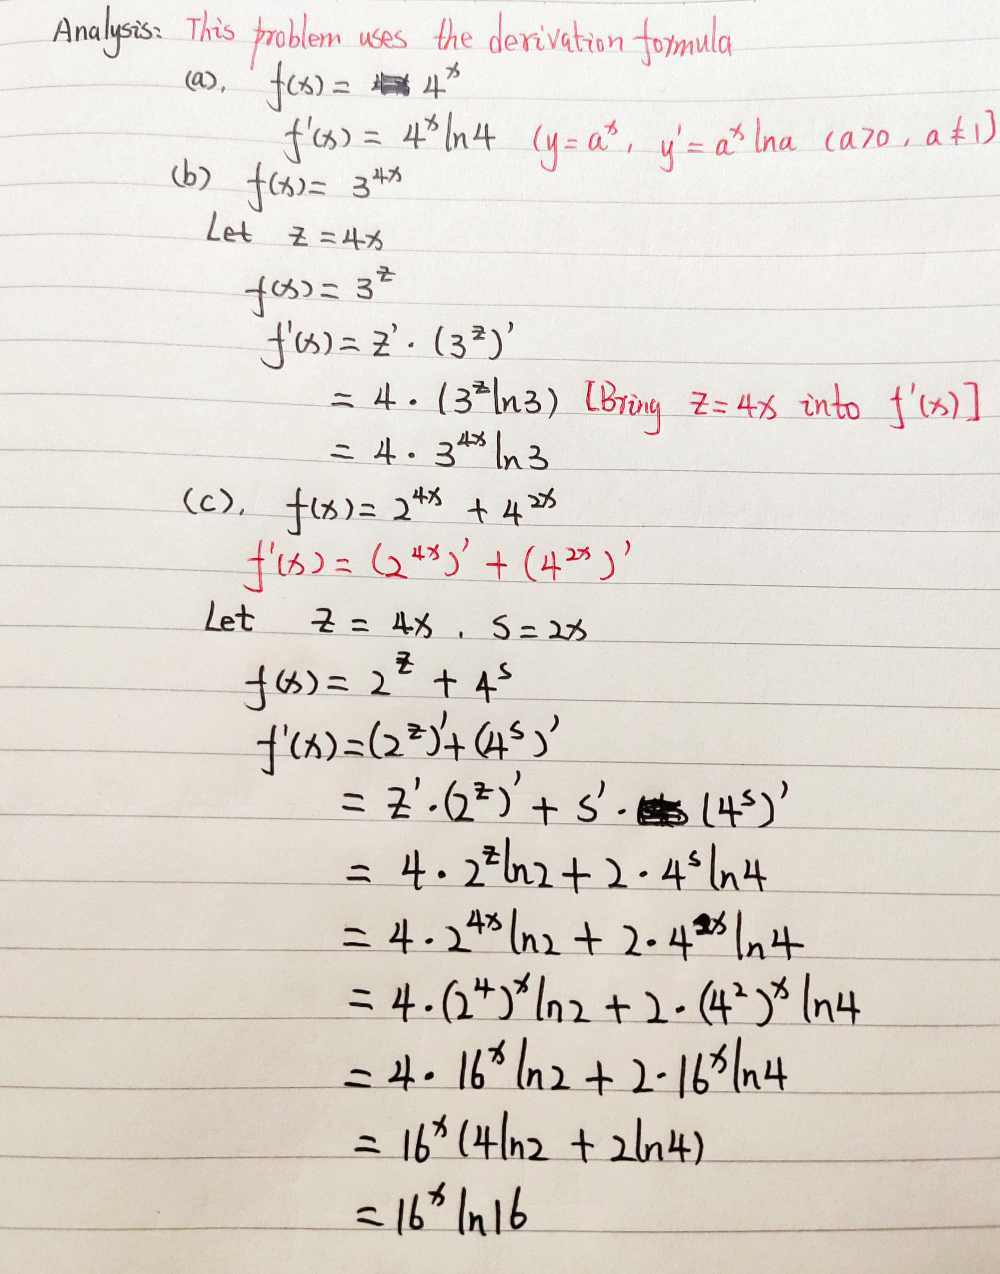 Analysis: This problem uses the derivation formula
(a). f(x) = 4^x
f'(x) = 4^x ln4 (y = a^x, y' = a^x lna (a>0, a≠1)
(b) f(x) = 3^{4x}
Let z = 4x
f(x) = 3^z
f'(x) = z' · (3^z)'
= 4 · (3^z ln3) [Bring z = 4x into f'(x)]
= 4 · 3^{4x} ln3
(c). f(x) = 2^{4x} + 4^{2x}
f'(x) = (2^{4x})' + (4^{2x})'
Let z = 4x , s = 2x
f(x) = 2^z + 4^s
f'(x) = (2^z)' + (4^s)'
= z' · (2^z)' + s' · (4^s)'
= 4 · 2^z ln2 + 2 · 4^s ln4
= 4 · 2^{4x} ln2 + 2 · 4^{2x} ln4
= 4 · (2^4)^x ln2 + 2 · (4^2)^x ln4
= 4 · 16^x ln2 + 2 · 16^x ln4
= 16^x (4ln2 + 2ln4)
= 16^x ln16